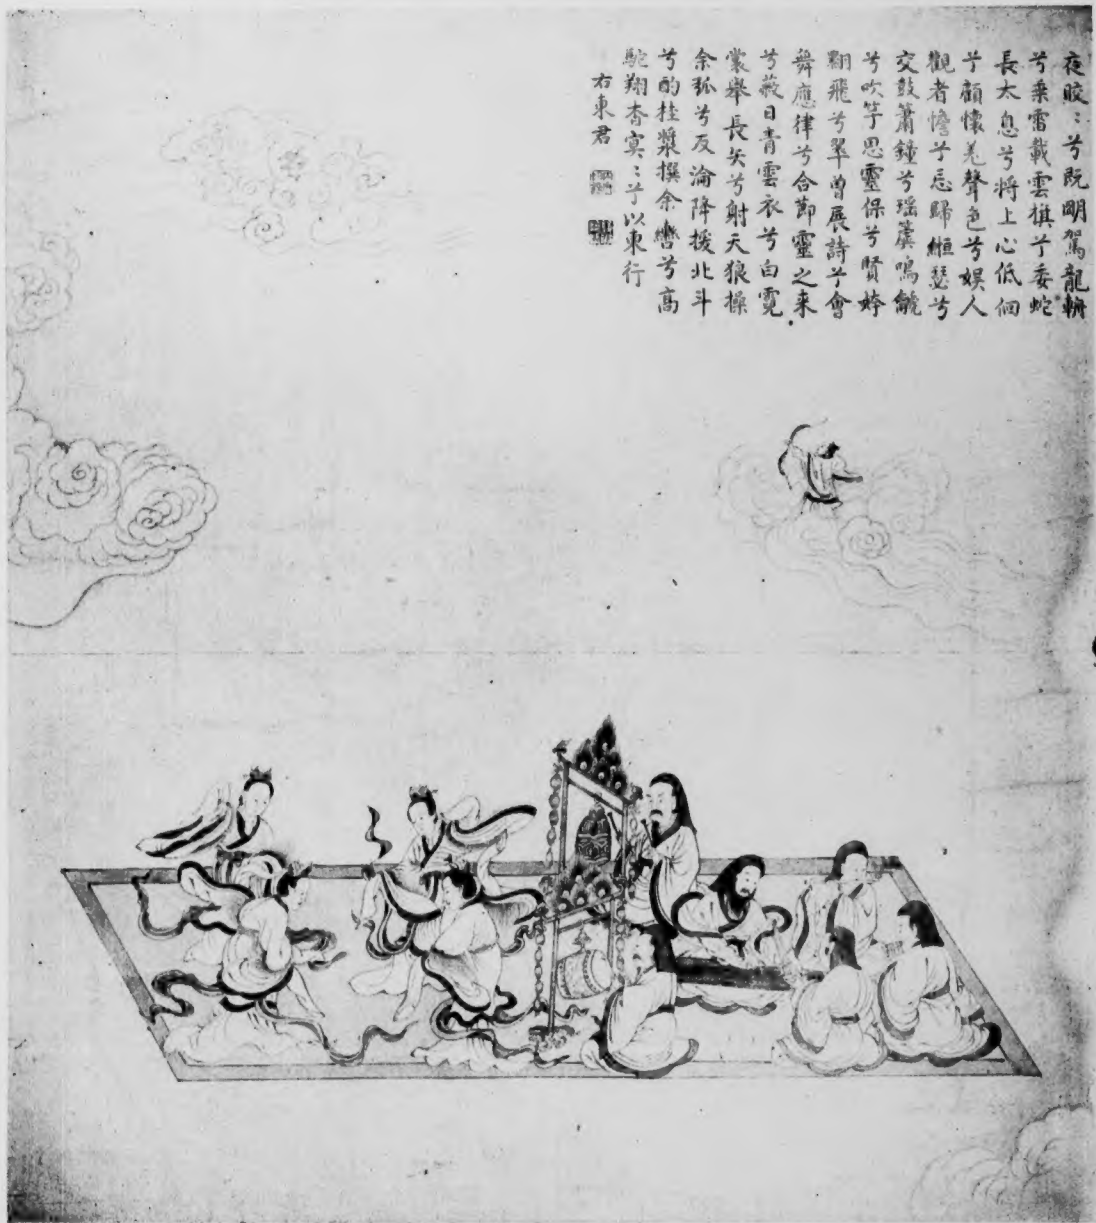 夜皎〻兮既明駕龍輈
兮乘雷載雲旗兮委蛇
長太息兮將上心低佪
兮顧懷羌聲色兮娛人
觀者憺兮忘歸緪瑟兮
交鼓簫鐘兮瑤簴鳴䶵
兮吹竽思靈保兮賢姱
翾飛兮翠曾展詩兮會
舞應律兮合節靈之来
兮蔽日青雲衣兮白霓
裳舉長矢兮射天狼操
余弧兮反淪降援北斗
兮酌桂漿撰余轡兮高
駝翔杳冥〻兮以東行
右東君